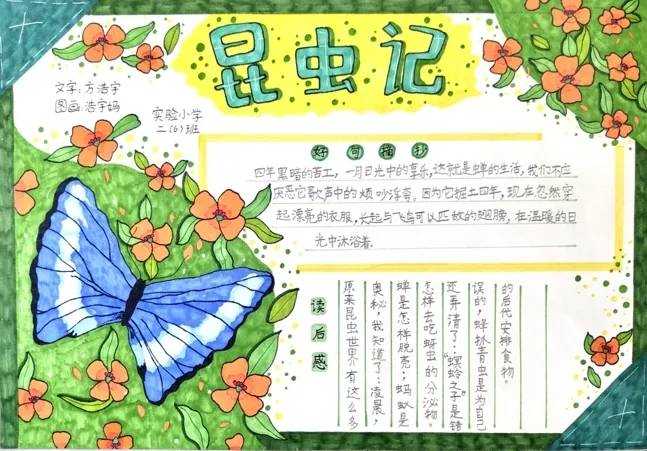 昆虫记
文字:方浩宇
图画:浩宇妈
实验小学
二(6)班
好句摘抄
四年黑暗的苦工,一月日光中的享乐,这就是蝉的生活,我们不应
厌恶它歌声中的烦吵浮夸。因为它掘土四年,现在忽然穿
起漂亮的衣服,长起与飞鸟可以匹敌的翅膀,在温暖的日
光中沐浴着.
读后感
原来昆虫世界有这么多
奥秘,我知道了:凌晨,
蝉是怎样脱壳;蚂蚁是
怎样去吃蚜虫的分泌物。
还弄清了:“螟蛉之子”是错
误的,蜂抓青虫是为自己
的后代安排食物。